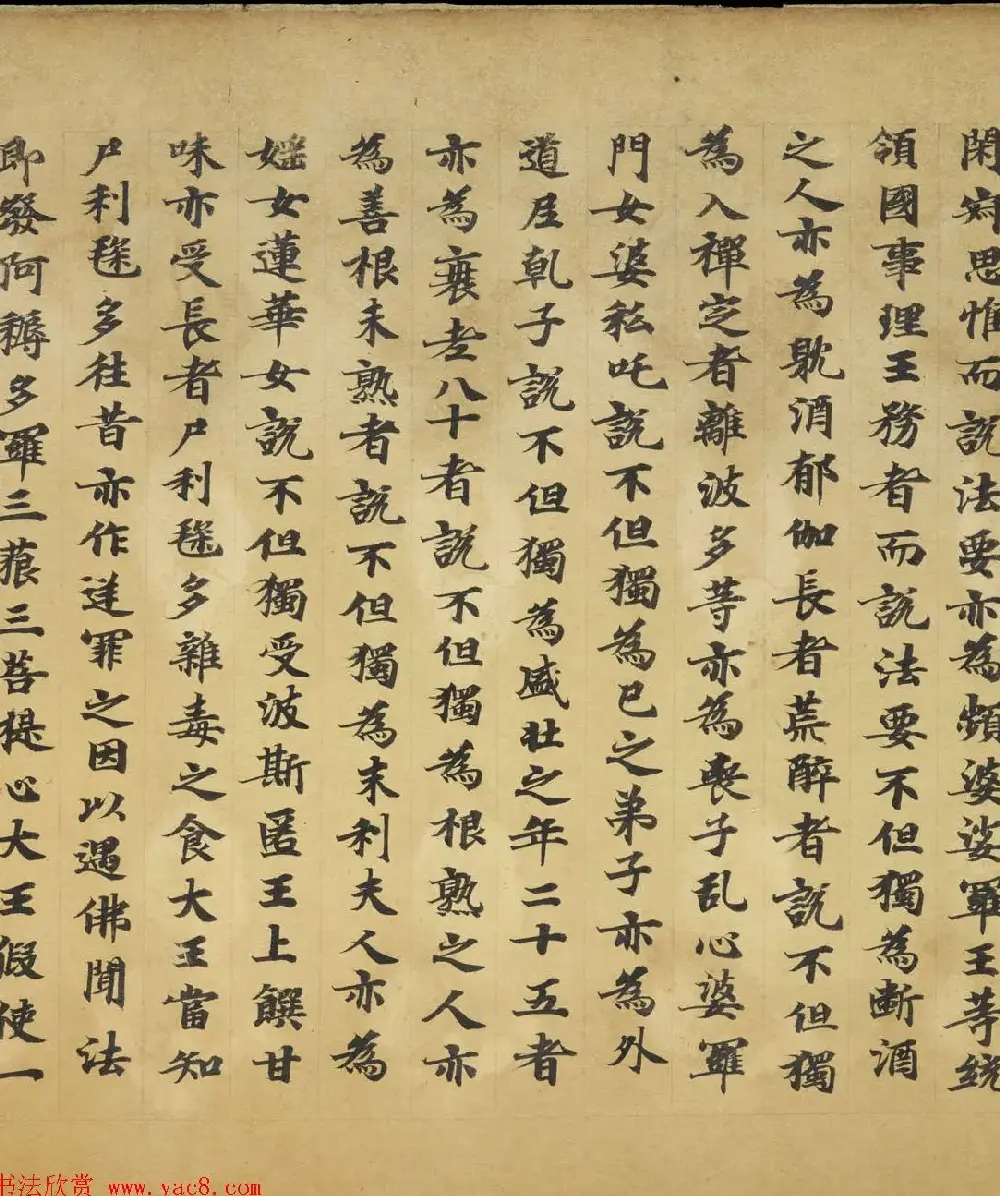 閑寂思惟而說法要亦為頻婆娑羅王等統
領國事理王務者而說法要不但獨為斷酒
之人亦為耽酒郁伽長者荒醉者說不但獨
為入禪定者離波多等亦為喪子乱心婆羅
門女婆私吒說不但獨為己之弟子亦為外
道尼乹子說不但獨為盛壯之年二十五者
亦為衰老八十者說不但獨為根熟之人亦
為善根未熟者說不但獨為末利夫人亦為
婬女蓮華女說不但獨受波斯匿王上饌甘
味亦受長者尸利毱多雜毒之食大王當知
尸利毱多往昔亦作逆罪之因以遇佛聞法
即發阿耨多羅三藐三菩提心大王假使一
书法欣赏 www.yac8.com